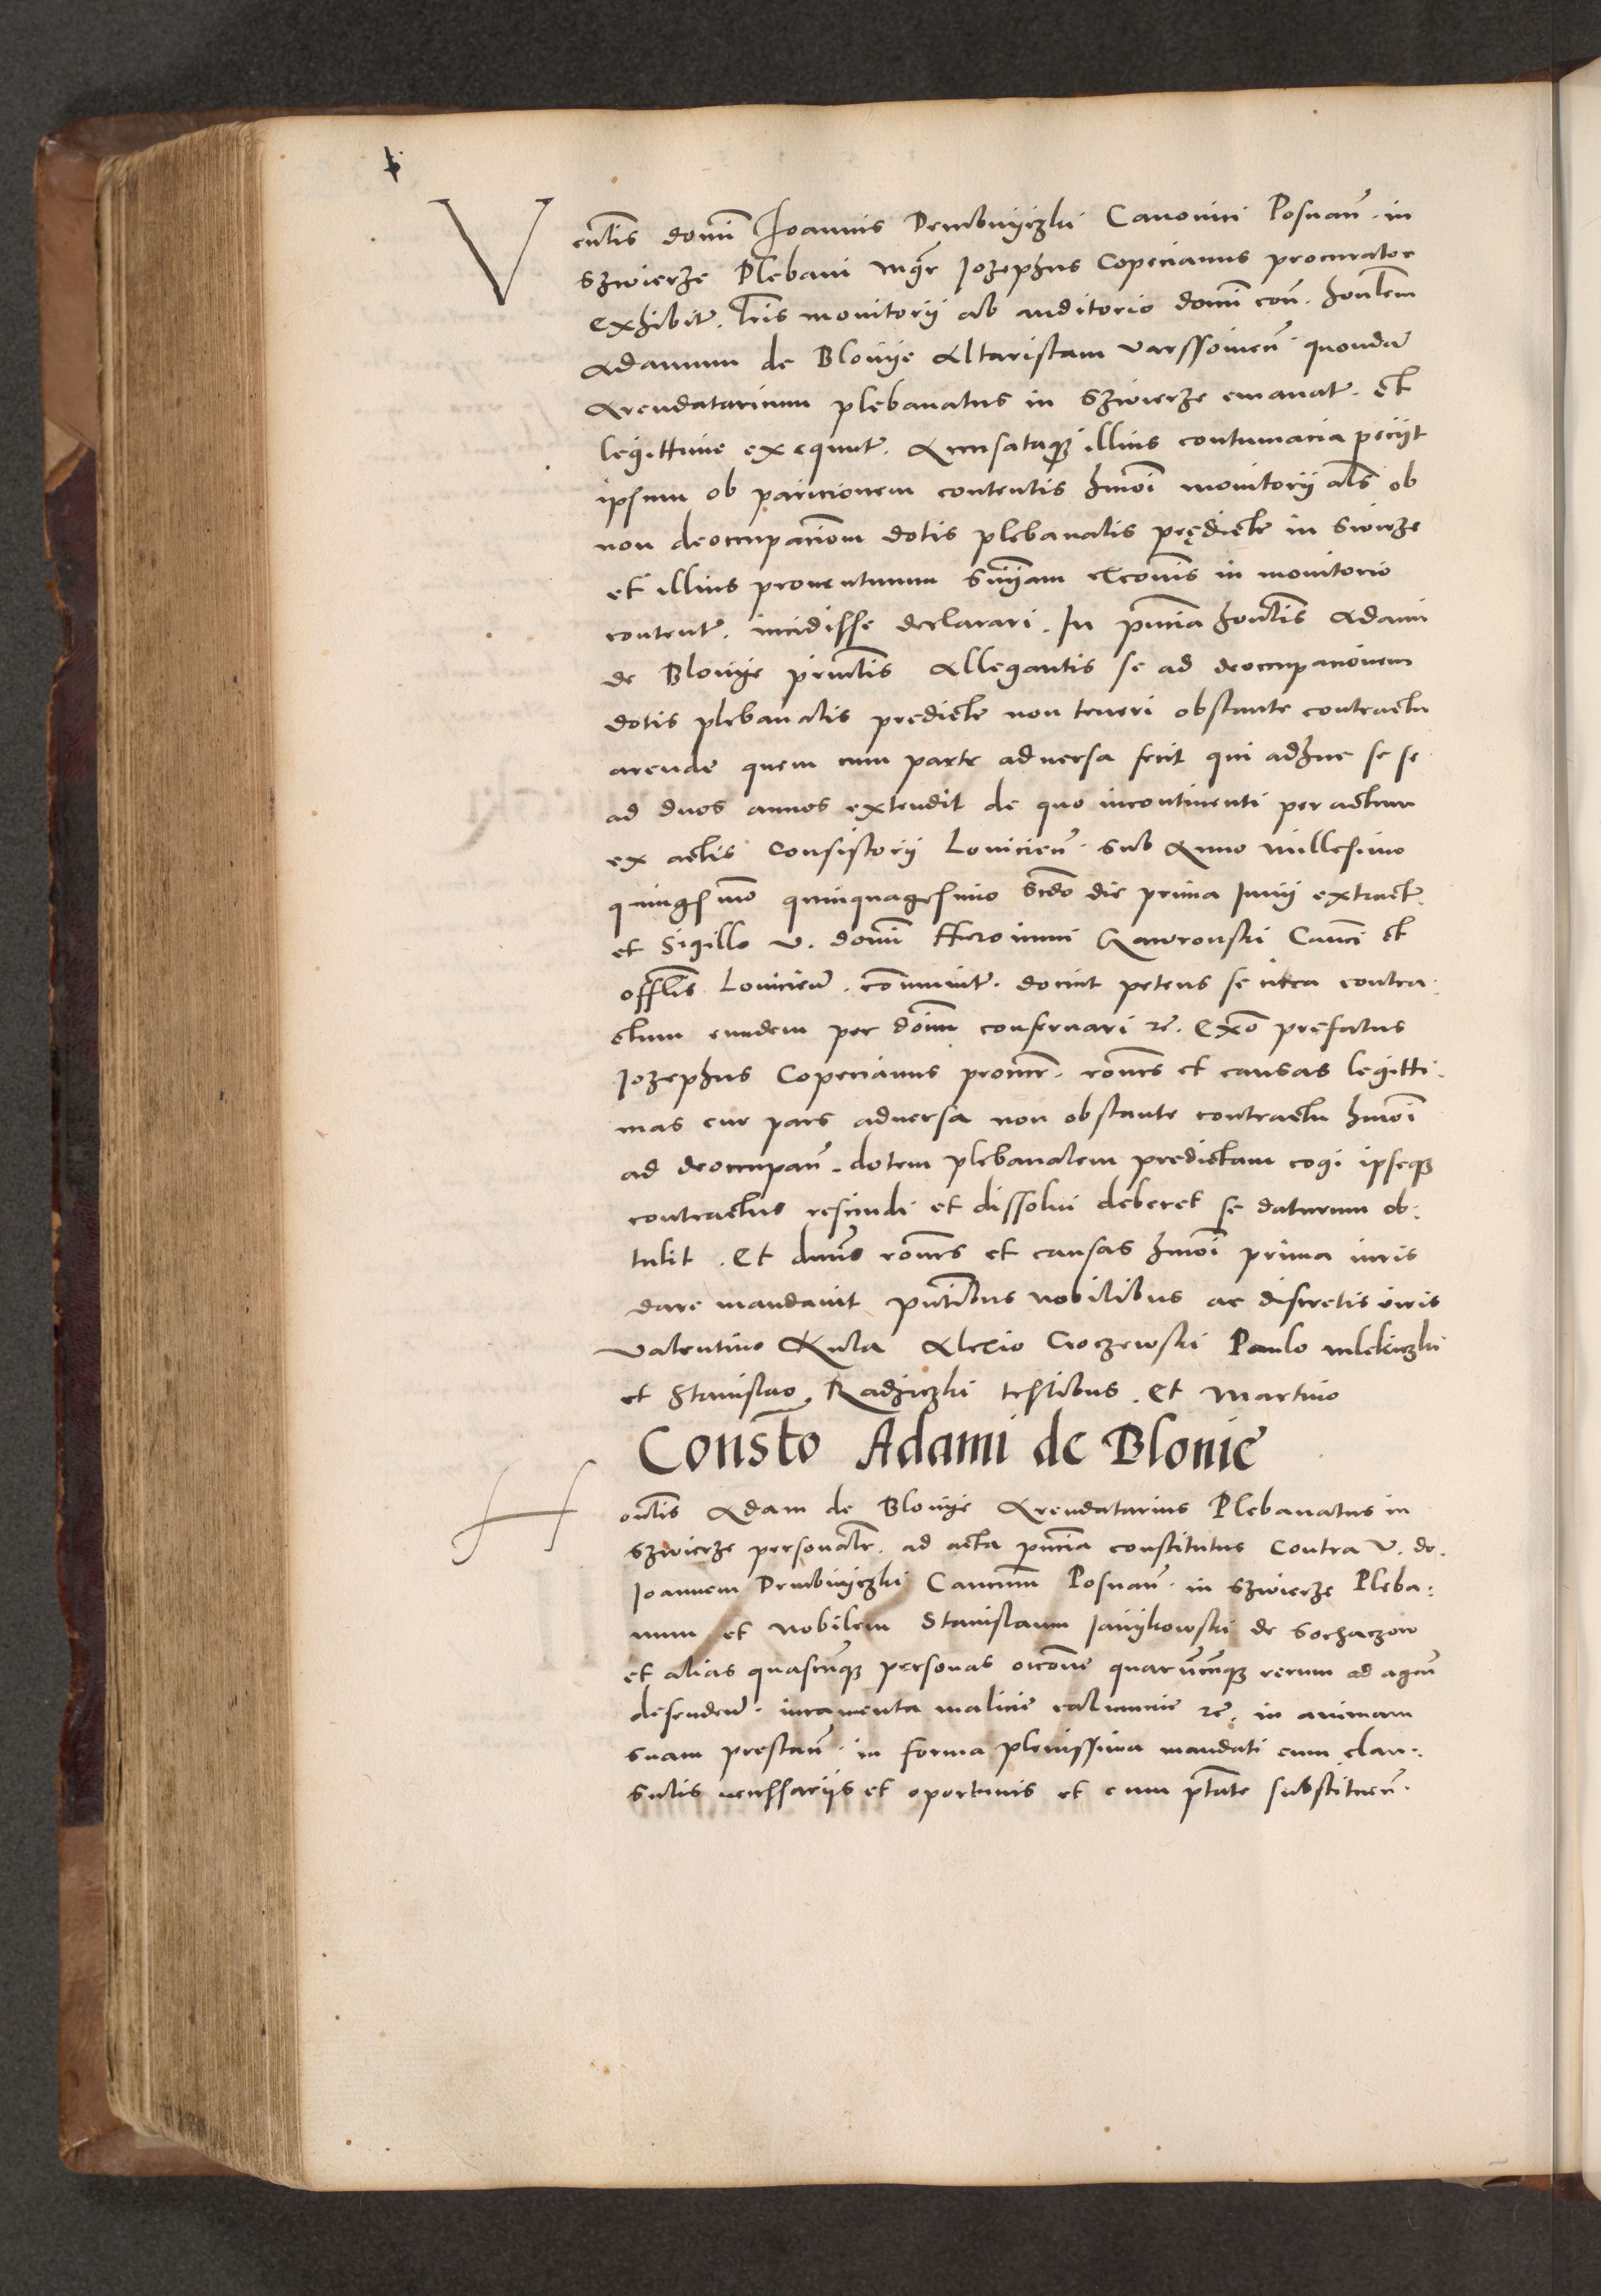 Venlis domi Joannis Dembnijczki Canonici Posnan. in
Szwierze Plebani mgr Jozephus Copecianus procurator
Exhibit. lris monitorij ab auditorio domi con. honlem
Adamum de Blonije Altaristam varssovien. quondã
Arendatarium plebanatus in Szwierze emanat. et
legittime exequut. Accusataque illius contumacia peciit
ipsum ob paricionem contentis hmoi monitorij als ob
non deoccupaciom dotis plebanalis prędicte in Swirze
et illius proventuum sniam excois in monitorio
content. incidisse declarari. In pncia honlis Adami
de Blonije principalis Allegantis se ad deoccupacionem
dotis plebanalis prędicte non teneri obstante contractu
arende quem cum parte adversa fecit qui adhuc se se
ad duos annos extendit de quo incontinenti per actum
ex actis Consistorij Lovicien. sub Anno millesimo
quingsimo quinquagesimo scdo die prima Junij extract.
et Sigillo v. domi Hieronimi Gawronski Canci et
offlis Lovicien. communit. docuit petens se citra contra-
ctum eundem per doim conservari rc. Exo prefatus
Jozephus Copecianus procur. roues et causas legitti-
mas cur pars adversa non obstante contractu hmoi
ad deoccupan. dotem plebanalem predictam cogi ipseque
contractus rescindi et dissolvi deberet se daturum ob-
tulit. Et dnus roues et causas hmoi prima iuris
dare mandavit pntibus nobilibus ac discretis viris
valentino Kula Alexio Croczewski Paulo mlekiczki
et Stanislao Radziczki testibus. Et Martino
Consto Adami de Blonie
Honlis Adam de Blonije Arendatarius Plebanatus in
Szwierze personalr. ad acta pncia constitutus Contra v. do.
Joannem Dembnijczki Canicum Posnan. in Szwierze Pleba-
num et nobilem Stanislaum Janijkowski de Sochaczow
et alias quascunque personas oicone quarumcunque rerum ad agen
defenden. iuramenta malicie calumnie rc. in animam
suam prestan. in forma plenissima mandati cum clau-
sulis necessariis et oportunis et cum ptate substituen.